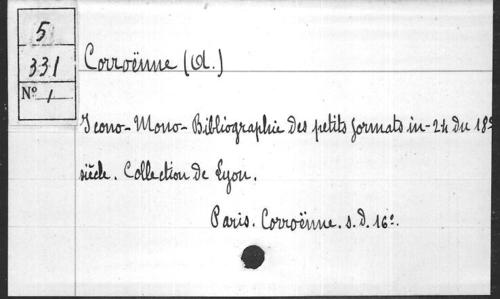 5
331
Nº 1
Corroënne (A.)
Icono-Mono-Bibliographie des petits formats in-24 du 18e
siècle. Collection de Lyon.
Paris. Corroënne. s.d. 16º.